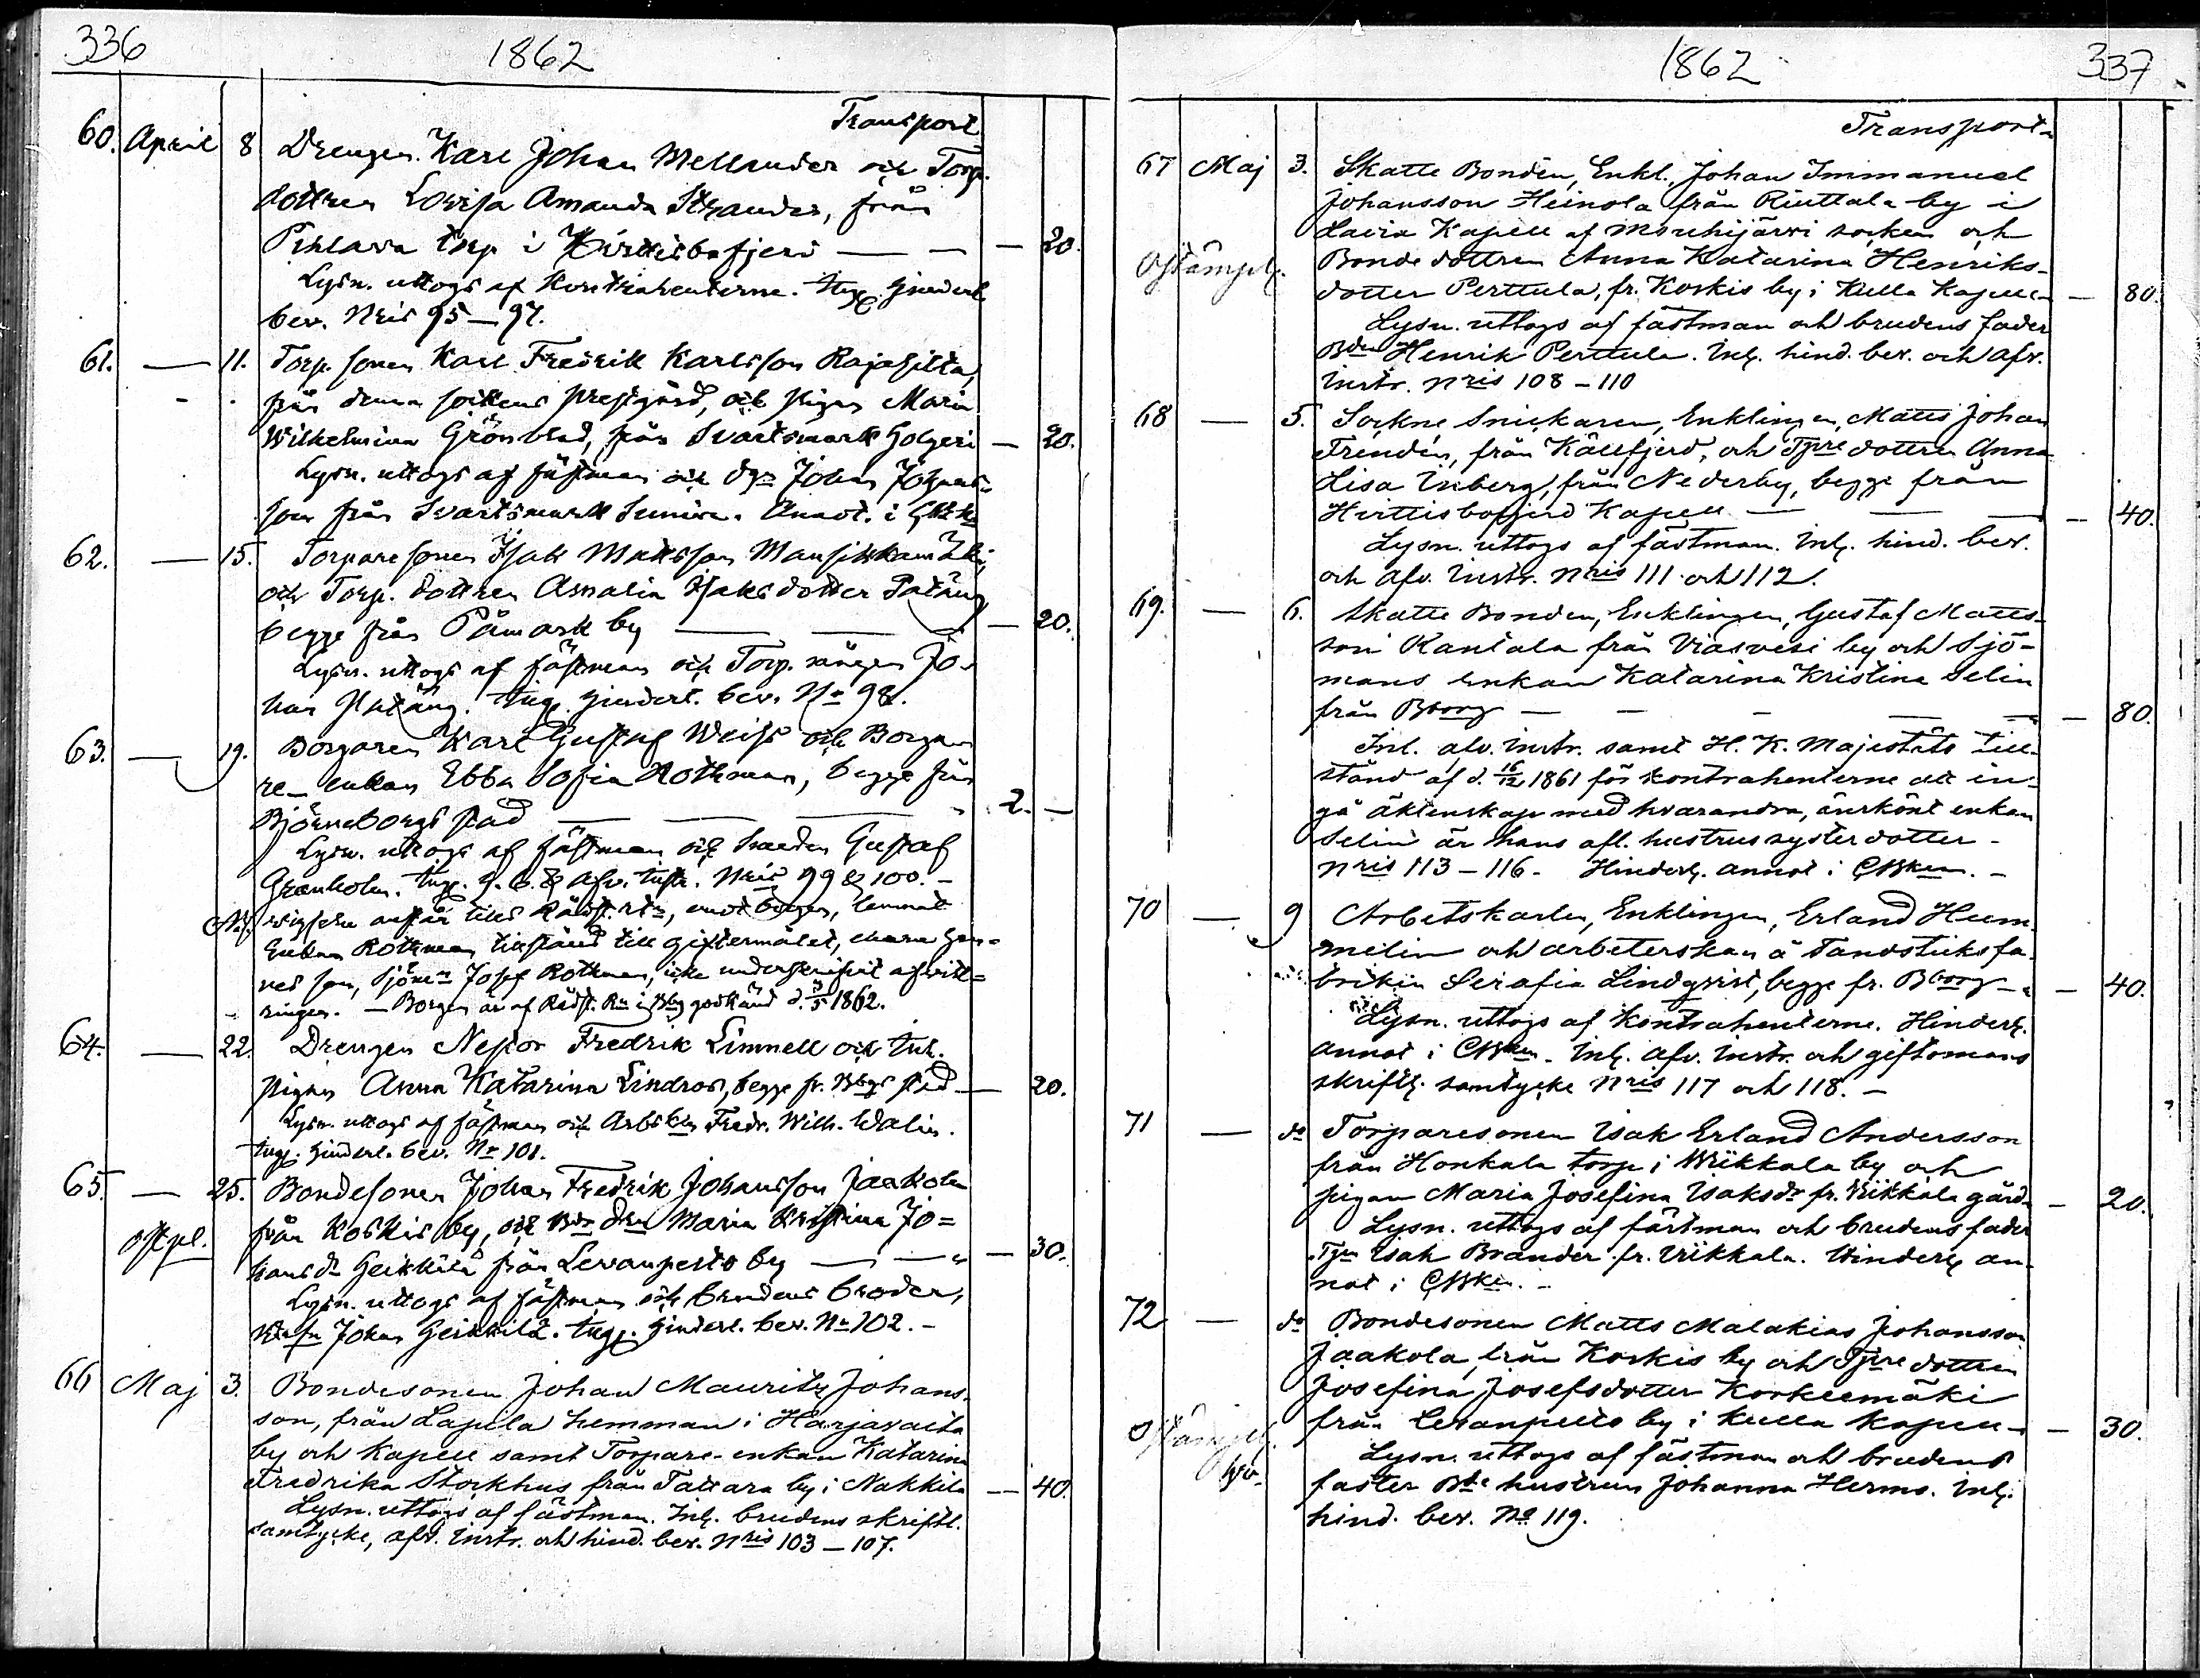 336
1862
Transport
60. April 8 Drengen Karl Johan Mellander och Torp.
dottren Lovisa Amanda Strander, från
Pihlava torp i Hvittisbofjerd — — — 20.
Lysn. uttogs af Kontrahenterne. Ing. hinderl.
bev. Nris 95—97.
61. — 11. Torp. sonen Karl Fredrik Karlsson Rajasilta,
från denna sockens prestgård, och pigan Maria
Wilhelmina Grönblad, från Svartsmark Holgeri — 20.
Lysn. uttogs af fästman och Johan
son från Svartsmark Annot. i
62. — 15. Torparesonen Isak Matsson Mansikkamäki,
och Torp. dottren Amalia Isaksdotter Patäng
begge från Påmark by — — — 20.
Lysn. uttogs af fästman och Torp. Jo-
han Patäng. Ing. hinderl. bev. No 98.
63. — 19. Borgaren Karl Gustaf Weiss och Borga-
re-enkan Ebba Sofia Rothman, begge från
Björneborgs stad — — — 2. —
Lysn. uttogs af fästman och Gustaf
Granholm. Ing. h. b. & afv. instr. Nris 99 & 100. —
till Rådst. rtn, lemnat
Enkan Rothman tillstånd till giftermålet, hen-
nes son, Sjömn Josef Rothman, icke underskrifvit afvitt-
ringen. — Borgen är af Rådst. Rn i Bbg godkänd d. 1862.
64. — 22. Drengen Nestor Fredrik Limnell och Inh.
pigan Anna Katarina Lindroos, begge fr. Bbgs stad — 20.
Lysn. uttogs af fästman och Arbskn Fredr. Wilh. Walin.
Ing. hinderl. bev. No 101.
65. — 25. Bondesonen Johan Fredrik Johansson Jaakola
från Koskis by, och Bde drn Maria Kristina Jo=
ostpl. hansdr Heikkilä från Levanpelto by — — — 30.
Lysn. uttogs af fästman och brudens broder,
Johan Heikkilä. Ing. hinderl. bev. No 102. —
66 Maj 3. Bondesonen Johan Mauritz Johans-
son, från Lapila hemman i Harjavalta
by och Kapell samt Torpare-enkan Katarina
Fredrika Storkhus från Tattara by i Nakkila — 40.
Lysn. uttogs af fästman. Inl. brudens skriftl.
samtycke, afv. instr. och hind. bev. Nris 103—107.
1862
337
Transport
67 Maj 3. Skatte Bonden, Enkl., Johan Immanuel
Johansson Heinola från Riuttala by i
Lavia Kapell af Mouhijärvi socken och
Ostämpl. Bonde dottren Anna Katarina Henriks-
dotter Perttula, fr. Koskis by i Kulla Kapell — 80.
Lysn. uttogs af fästman och brudens fader
Bdn Henrik Perttula. Inl. hind. bev. och afv.
instr. Nris 108—110
68 — 5. Sockne Snickaren, Enklingen, Matts Johan
Trendén, från Källfjerd, och Tpre dottren Anna
Lisa Inberg, från Nederby, begge från
Hvittisbofjerd Kapell — — — 40.
Lysn. uttogs af fästman. Inl. hind. bev.
och afv. instr. Nris 111 och 112.
69. — 6. Skatte Bonden, Enklingen, Gustaf Matts-
son Rantala från Viasvesi by och Sjö-
mans enkan Katarina Kristina Selin
från Bborg — — — 80.
Inl. afv. instr. samt H. K. Majestäts till-
stånd af d. 16/12 1861 för kontrahenterne att in-
gå äktenskap med hvarandra, änskönt enkan
Selin är hans afl. hustrus systerdotter —
Nris 113—116. Hinderl. annot i CNBken. —
70 — 9 Arbetskarlen, Enklingen, Erland Hum-
melin och arbeterskan å Tandsticksfa-
briken Serafia Lindqvist, begge fr. Bborg — 40.
Lysn. uttogs af Kontrahenterne. Hinderl.
annot i CNBken. Inl. afv. instr. och giftomans
skriftl. samtycke Nris 117 och 118. —
71 — do Torparesonen Isak Erland Andersson
från Honkala torp i Wiikkala by och
pigan Maria Josefina Isaksdr fr. Wiikkala gård — 20.
Lysn. uttogs af fästman och brudens fader
Tpn Isak Brander fr. Viikkala. Hinderl. an-
not i CNBken. —
72 — do Bondesonen Matts Malakias Johansson
Jaakola, från Koskis by och Tpre dottren
Josefina Josefsdotter Korkeemäki
Ostämpl. från Levanpelto by i Kulla Kapell — 30.
Lysn. uttogs af fästman och brudens
faster Bde hustrun Johanna Herms. Inl.
hind. bev. No 119.